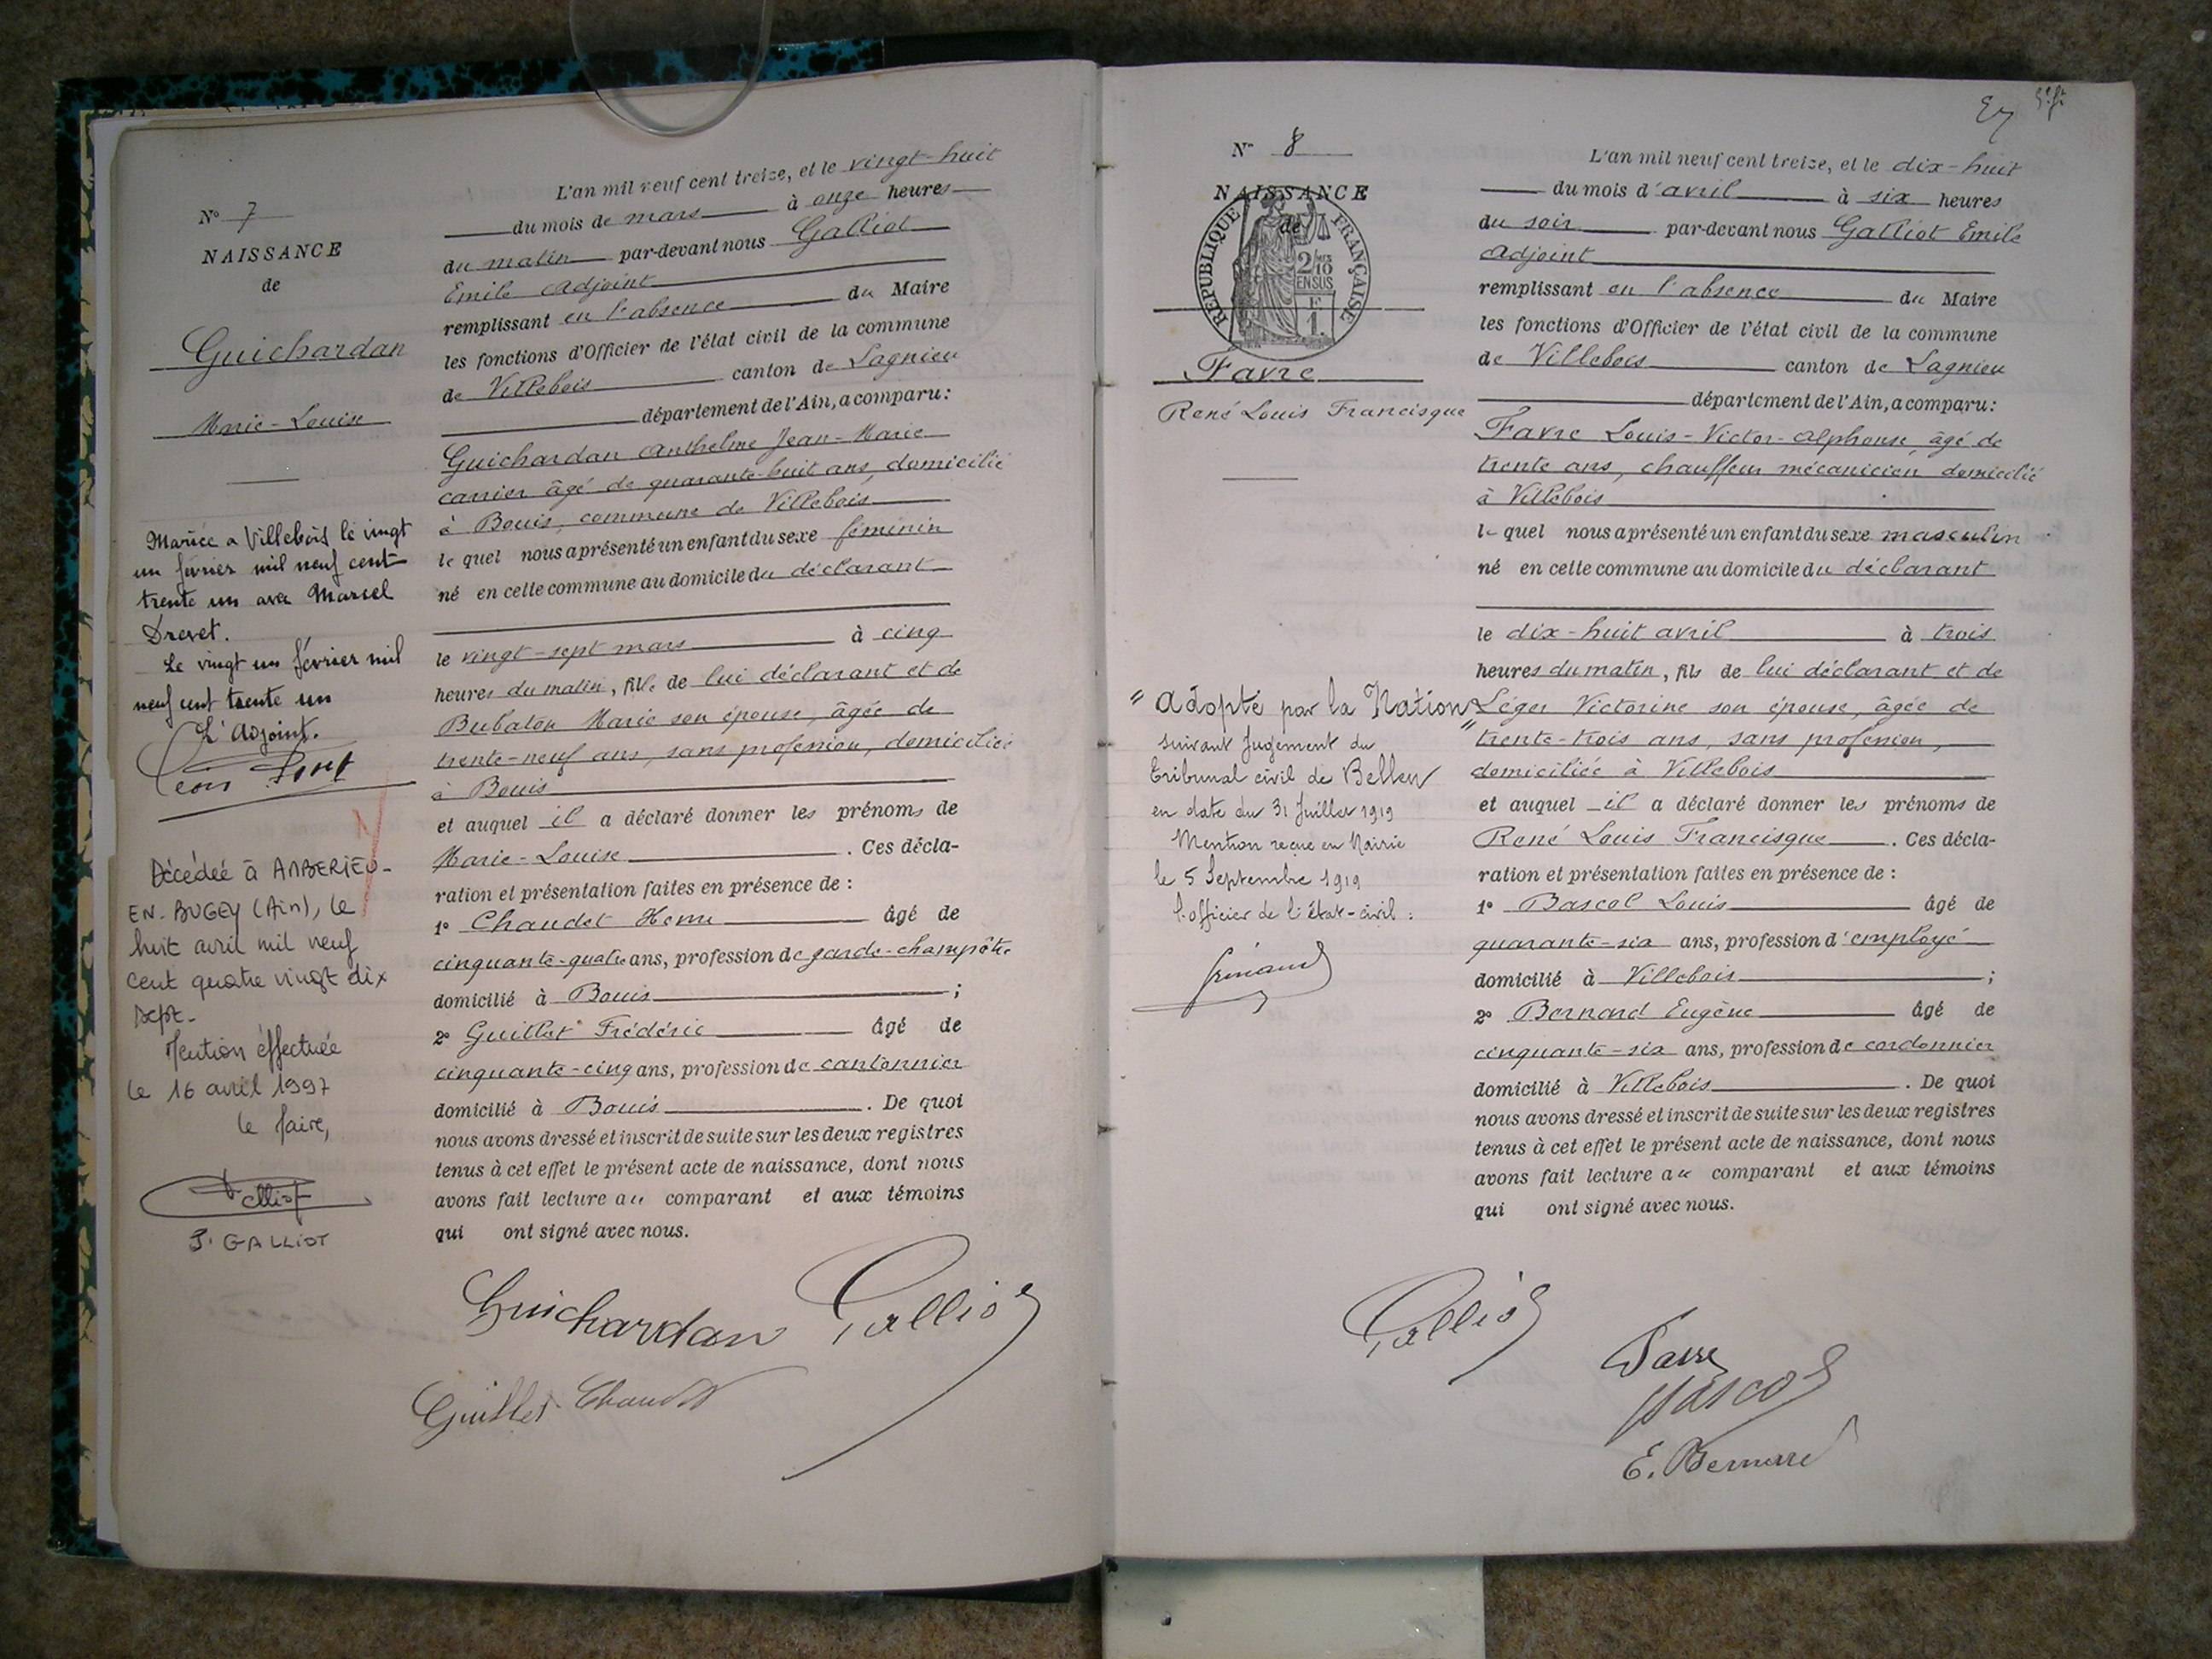 N° 7
NAISSANCE
de
Guichardan
Marie-Louise
Mariée a Villebois le vingt
un février mil neuf cent
trente un avec Marcel
Drevet.
Le vingt un février mil
neuf cent trente un
L'Adjoint.
Décédée à AMBERIEU-
EN-BUGEY (Ain), le
huit avril mil neuf
cent quatre vingt dix
sept-
Mention éffectuée
le 16 avril 1997
le Maire,
J. GALLIOT
L'an mil neuf cent treize, et le vingt-huit
du mois de mars à onze heures
du matin par-devant nous Galliot
Emile adjoint
remplissant en l'absence du Maire
les fonctions d'Officier de l'état civil de la commune
de Villebois canton de Lagnieu
département de l'Ain, a comparu:
Guichardan Anthelme Jean-Marie
carrier âgé de quarante-huit ans, domicilié
à Bouis, commune de Villebois
le quel nous a présenté un enfant du sexe féminin
né en cette commune au domicile du déclarant
le vingt-sept mars à cinq
heures du matin, fille de lui déclarant et de
Bubaton Marie son épouse, âgée de
trente-neuf ans, sans profession, domiciliée
à Bouis
et auquel il a déclaré donner les prénoms de
Marie-Louise. Ces décla-
ration et présentation faites en présence de :
1° Chaudet Henri âgé de
cinquante-quatre ans, profession de garde-champêtre
domicilié à Bouis ;
2° Guillet Frédéric âgé de
cinquante-cinq ans, profession de cantonnier
domicilié à Bouis. De quoi
nous avons dressé et inscrit de suite sur les deux registres
tenus à cet effet le présent acte de naissance, dont nous
avons fait lecture au comparant et aux témoins
qui ont signé avec nous.
Guichardan Galliot
Guillet Chaudet
N° 8
NAISSANCE
de
RÉPUBLIQUE FRANÇAISE
2/10
EN SUS
F
1.
Favre
René Louis Francisque
"Adopté par la Nation"
suivant Jugement du
tribunal civil de Belley
en date du 31 Juillet 1919
Mention reçue en Mairie
le 5 Septembre 1919
l'officier de l'état-civil :
L'an mil neuf cent treize, et le dix-huit
du mois d'avril à six heures
du soir par-devant nous Galliot Emile
adjoint
remplissant en l'absence du Maire
les fonctions d'Officier de l'état civil de la commune
de Villebois canton de Lagnieu
département de l'Ain, a comparu:
Favre Louis-Victor-Alphonse, âgé de
trente ans, chauffeur mécanicien, domicilié
à Villebois
le quel nous a présenté un enfant du sexe masculin
né en cette commune au domicile du déclarant
le dix-huit avril à trois
heures du matin, fils de lui déclarant et de
Léger Victorine son épouse, âgée de
trente-trois ans, sans profession,
domiciliée à Villebois
et auquel il a déclaré donner les prénoms de
René Louis Francisque. Ces décla-
ration et présentation faites en présence de :
1° Bascol Louis âgé de
quarante-six ans, profession d'employé
domicilié à Villebois ;
2° Bernard Eugène âgé de
cinquante-six ans, profession de cordonnier
domicilié à Villebois. De quoi
nous avons dressé et inscrit de suite sur les deux registres
tenus à cet effet le présent acte de naissance, dont nous
avons fait lecture au comparant et aux témoins
qui ont signé avec nous.
Galliot
Favre
Bascol
E. Bernard